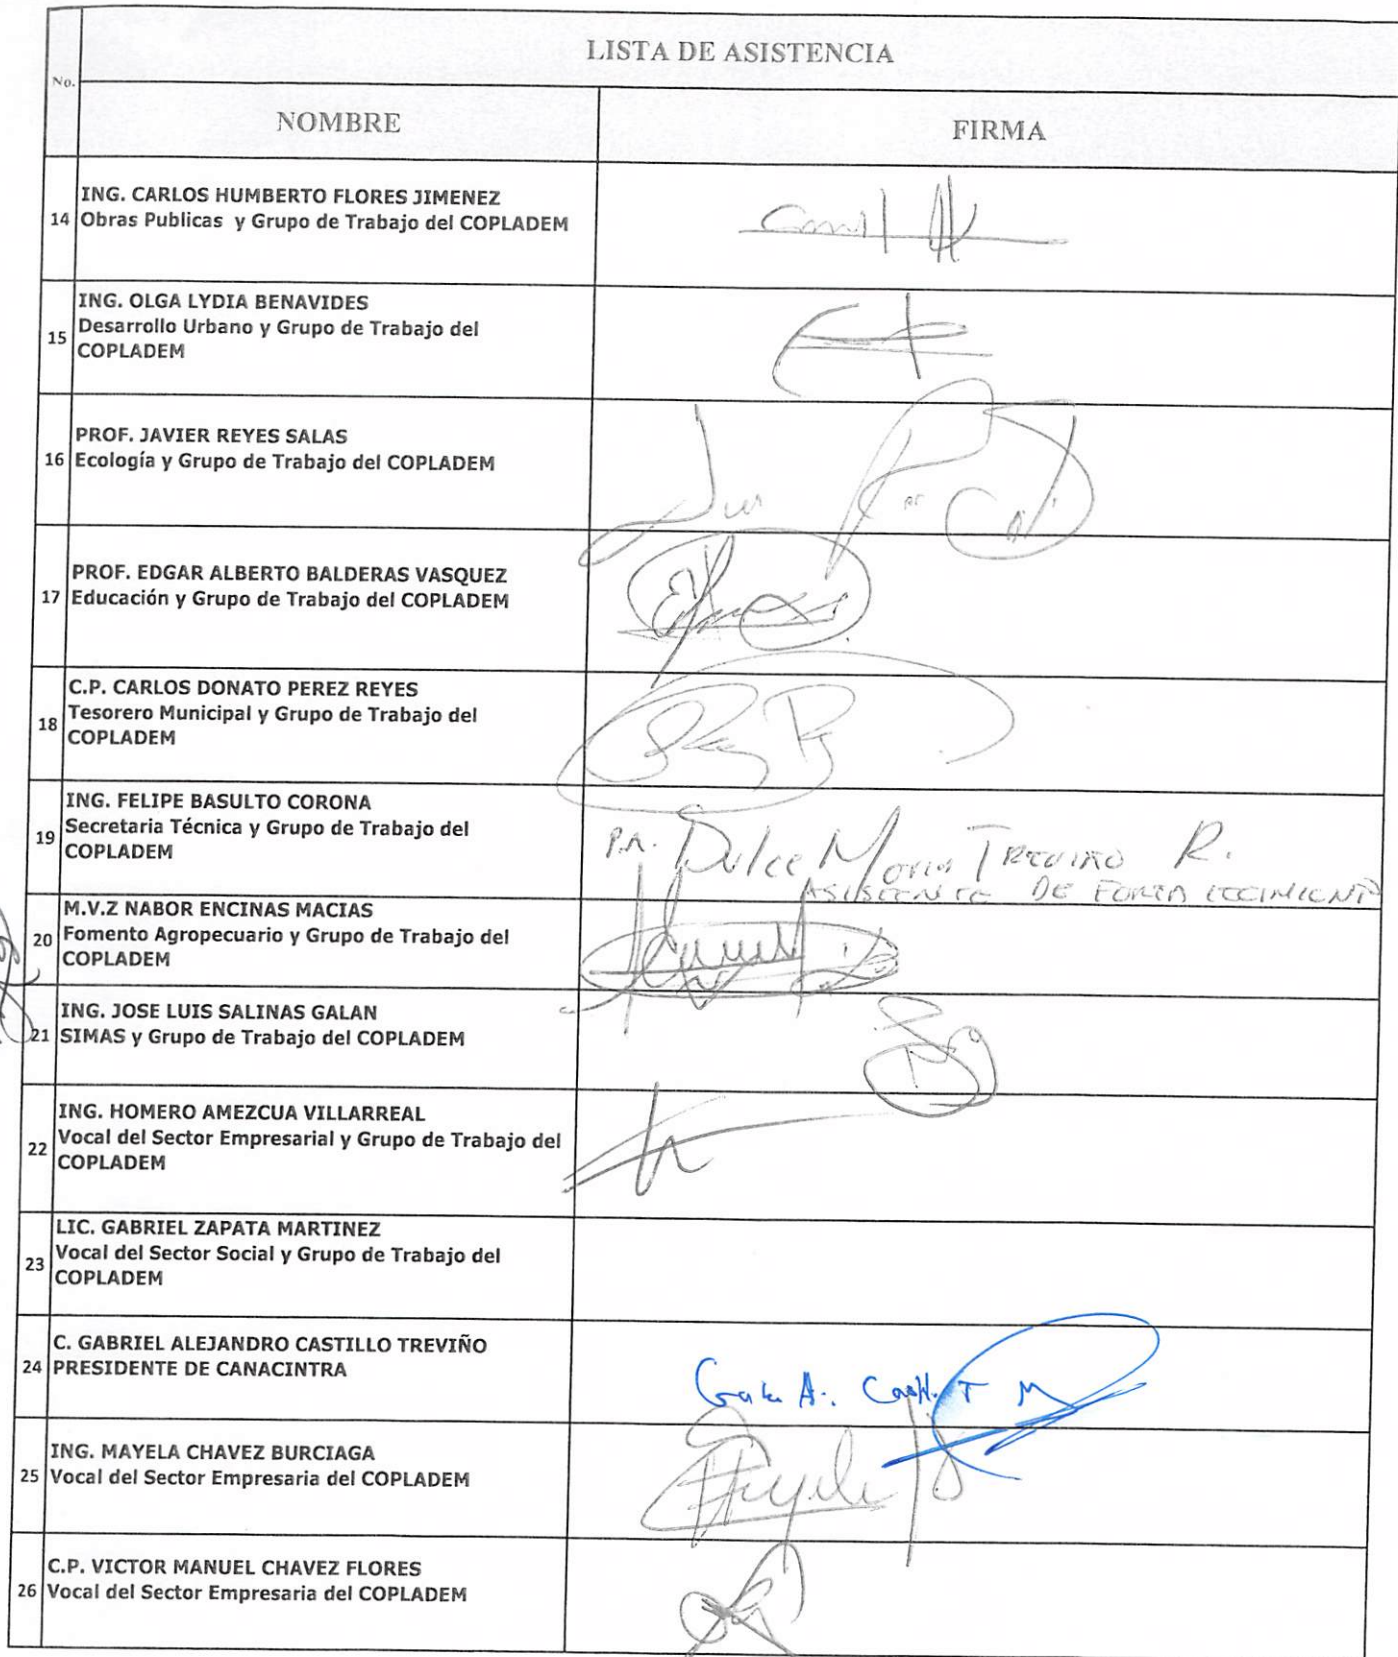 LISTA DE ASISTENCIA
No.
NOMBRE
FIRMA
ING. CARLOS HUMBERTO FLORES JIMENEZ
14 Obras Publicas y Grupo de Trabajo del COPLADEM
ING. OLGA LYDIA BENAVIDES
15 Desarrollo Urbano y Grupo de Trabajo del
COPLADEM
PROF. JAVIER REYES SALAS
16 Ecología y Grupo de Trabajo del COPLADEM
PROF. EDGAR ALBERTO BALDERAS VASQUEZ
17 Educación y Grupo de Trabajo del COPLADEM
C.P. CARLOS DONATO PEREZ REYES
18 Tesorero Municipal y Grupo de Trabajo del
COPLADEM
ING. FELIPE BASULTO CORONA
19 Secretaria Técnica y Grupo de Trabajo del
COPLADEM
P.A. Dulce Maria TREVIÑO R.
ASISTENTE DE
M.V.Z NABOR ENCINAS MACIAS
20 Fomento Agropecuario y Grupo de Trabajo del
COPLADEM
ING. JOSE LUIS SALINAS GALAN
21 SIMAS y Grupo de Trabajo del COPLADEM
ING. HOMERO AMEZCUA VILLARREAL
22 Vocal del Sector Empresarial y Grupo de Trabajo del
COPLADEM
LIC. GABRIEL ZAPATA MARTINEZ
23 Vocal del Sector Social y Grupo de Trabajo del
COPLADEM
C. GABRIEL ALEJANDRO CASTILLO TREVIÑO
24 PRESIDENTE DE CANACINTRA
ING. MAYELA CHAVEZ BURCIAGA
25 Vocal del Sector Empresaria del COPLADEM
C.P. VICTOR MANUEL CHAVEZ FLORES
26 Vocal del Sector Empresaria del COPLADEM